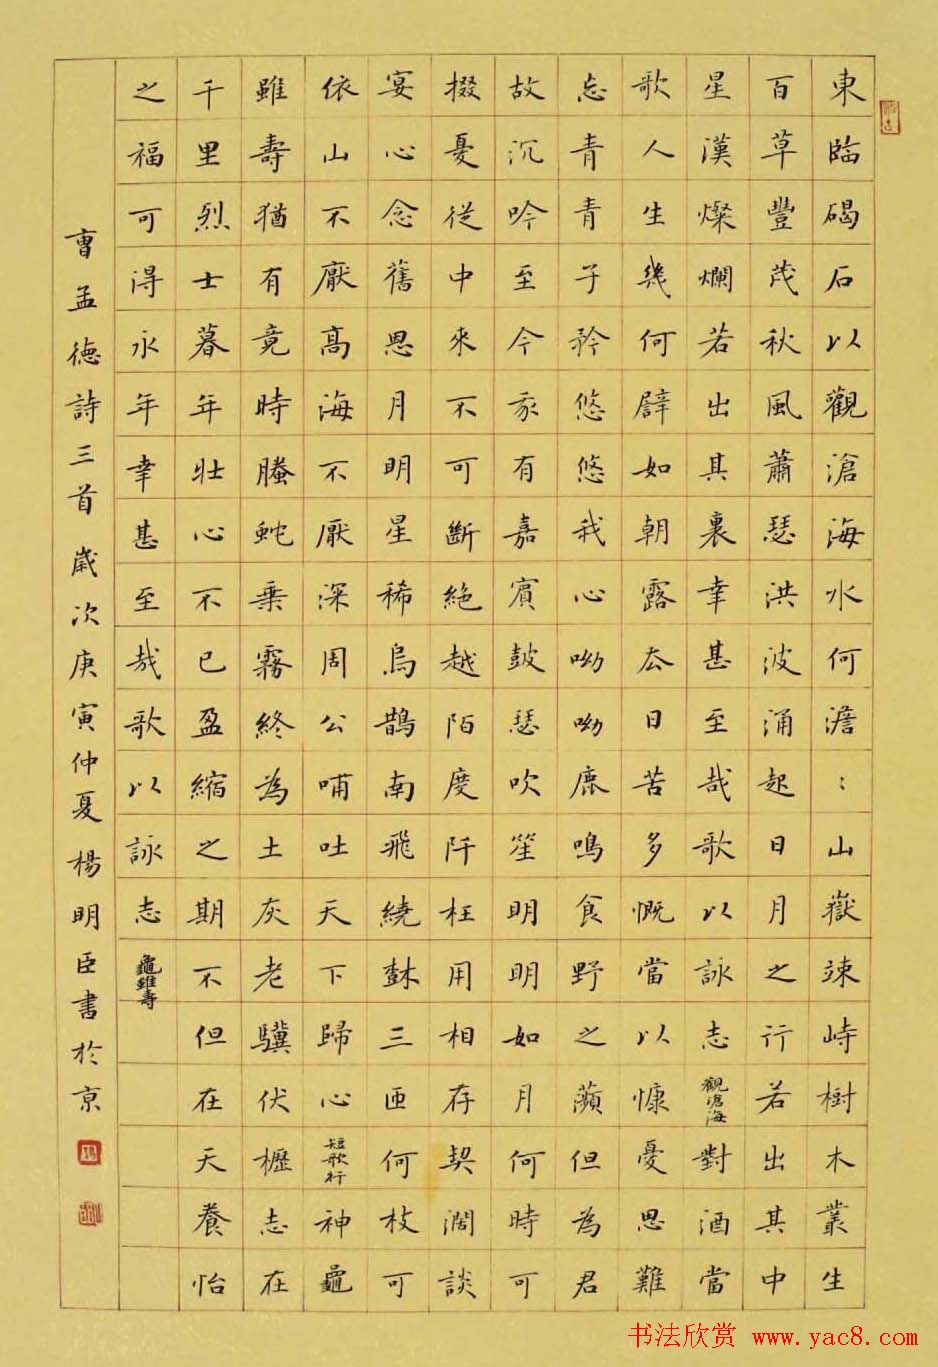 東臨碣石以觀滄海水何澹〻山嶽竦峙樹木叢生
百草豐茂秋風蕭瑟洪波涌起日月之行若出其中
星漢燦爛若出其裏幸甚至哉歌以詠志觀滄海對酒當
歌人生幾何譬如朝露去日苦多慨當以慷憂思難
忘青青子衿悠悠我心呦呦鹿鳴食野之蘋但為君
故沉吟至今我有嘉賓鼓瑟吹笙明明如月何時可
掇憂從中來不可斷絕越陌度阡枉用相存契闊談
宴心念舊恩月明星稀烏鵲南飛繞樹三匝何枝可
依山不厭高海不厭深周公哺吐天下歸心短歌行神龜
雖壽猶有竟時螣蛇乘霧終為土灰老驥伏櫪志在
千里烈士暮年壯心不已盈縮之期不但在天養怡
之福可得永年幸甚至哉歌以詠志龜雖壽
曹孟德詩三首歲次庚寅仲夏楊明臣書於京
书法欣赏 www.yac8.com